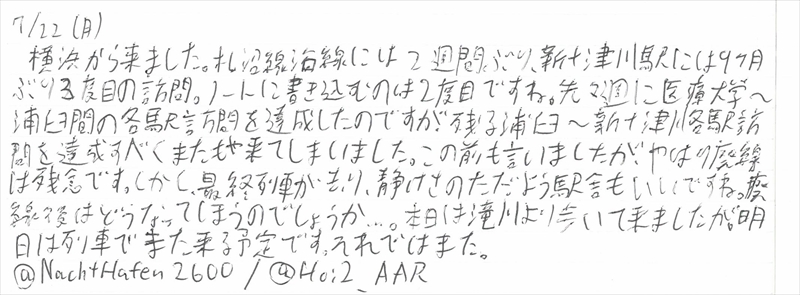 7/22(月)
横浜から来ました。札沼線沿線には2週間ぶり、新十津川駅には9ヶ月
ぶり3度目の訪問。ノートに書き込むのは2度目ですね。先々週に医療大学～
浦臼間の各駅訪問を達成したのですが残る浦臼～新十津川各駅訪
問を達成すべくまたもや来てしまいました。この前も言いましたが、やはり廃線
は残念です。しかし、最終列車が去り、静けさのただよう駅舎もいいですね。廃
線後はどうなってしまうのでしょうか…。本日は滝川より歩いて来ましたが。明
日は列車でまた来る予定です。それではまた。
@NachtHafen2600/@Hoi2_AAR